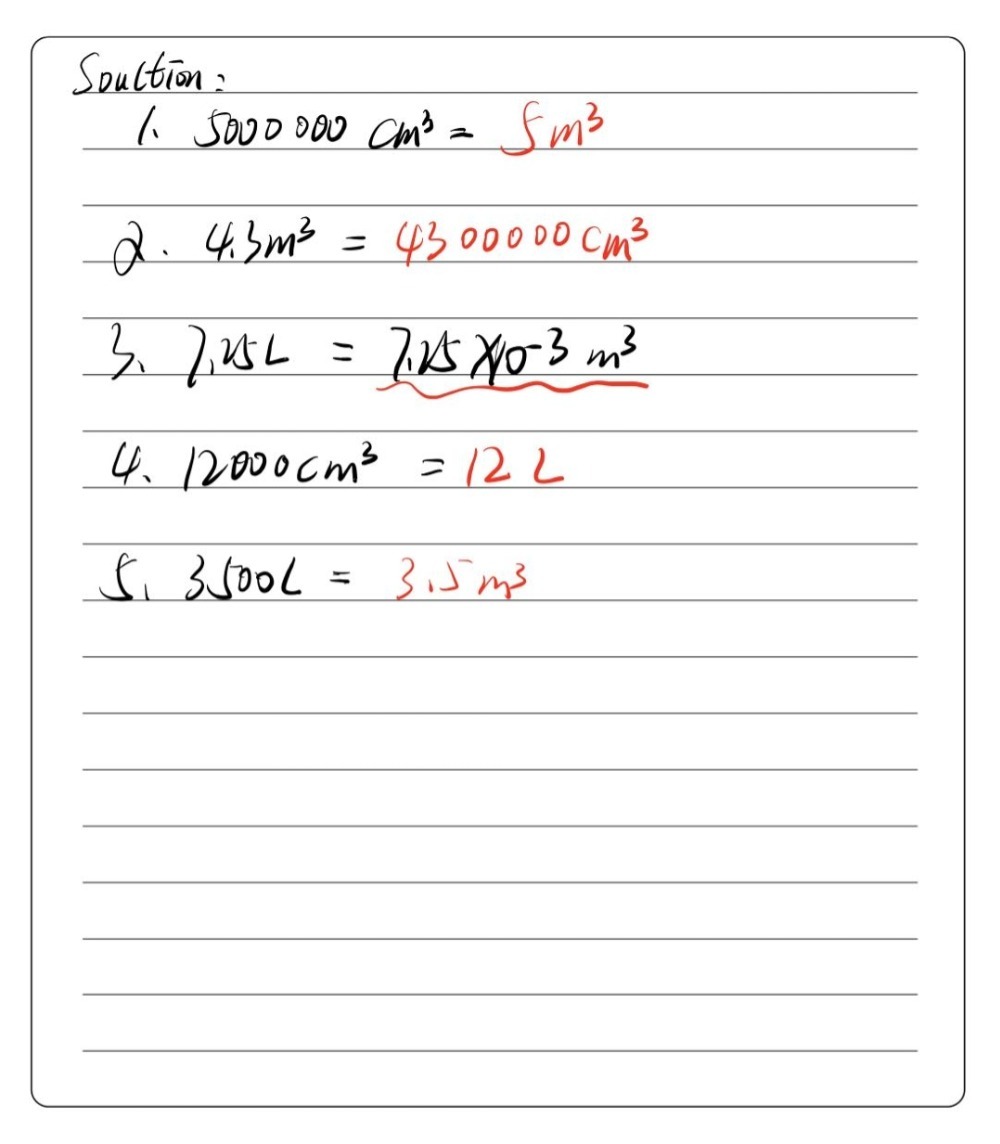 Soultion:
1. 5000000 cm³ = 5m³
2. 4.3m³ = 4300000cm³
3. 7.25L = 7.25×10-3 m³
4. 12000cm³ = 12L
5. 3500L = 3.5m³